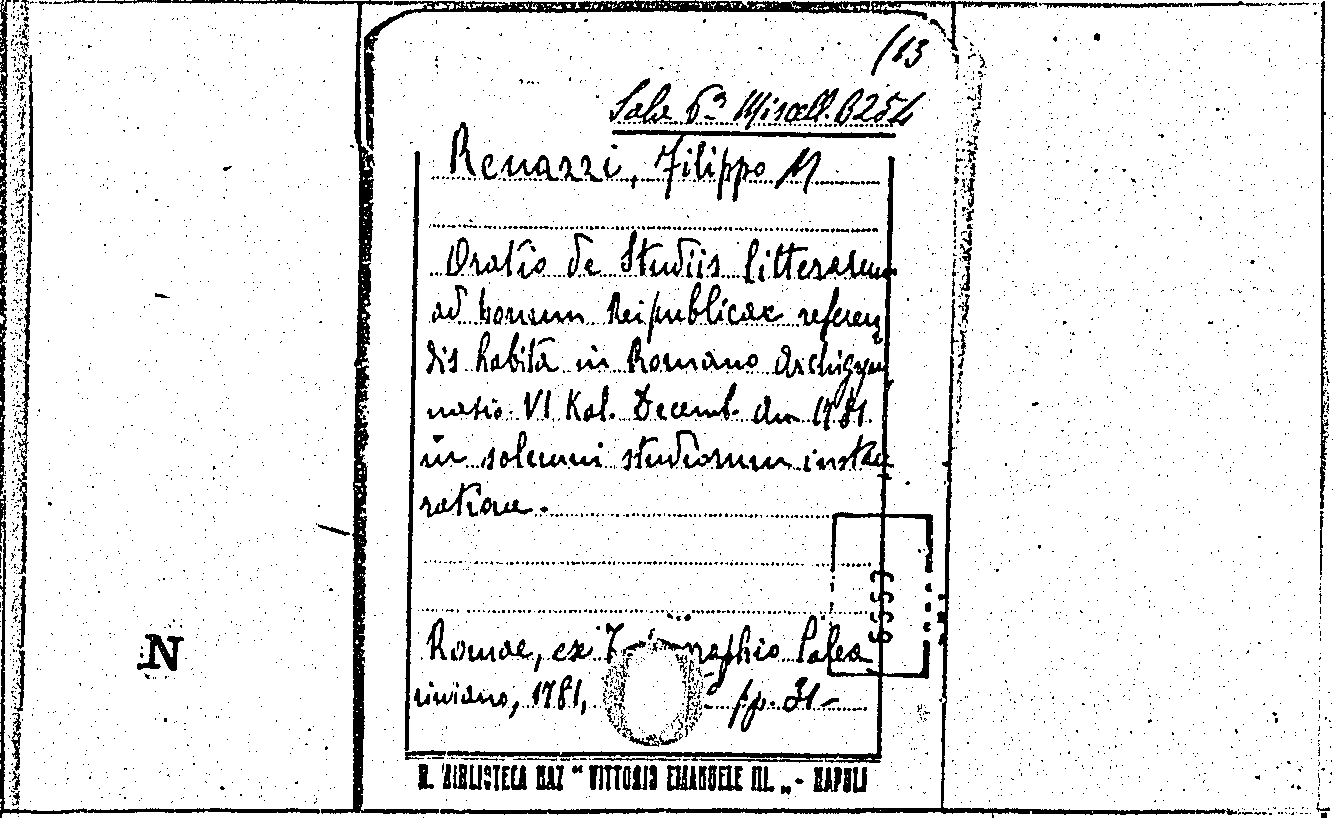 (13
Sala 6ª Miscell. B254
Renazzi, Filippo M
Oratio de Studiis litterarum
ad bonum Reipublicae referen
dis habita in Romano Archigym
nasio VI Kal. Decemb. An 1781
in solemni studiorum instau
ratione.
Romae, ex graphio Salo
moniano, 1781, pp. 31-
6553
N
R. BIBLIOTECA NAZ " VITTORIO EMANUELE III. „ - NAPOLI